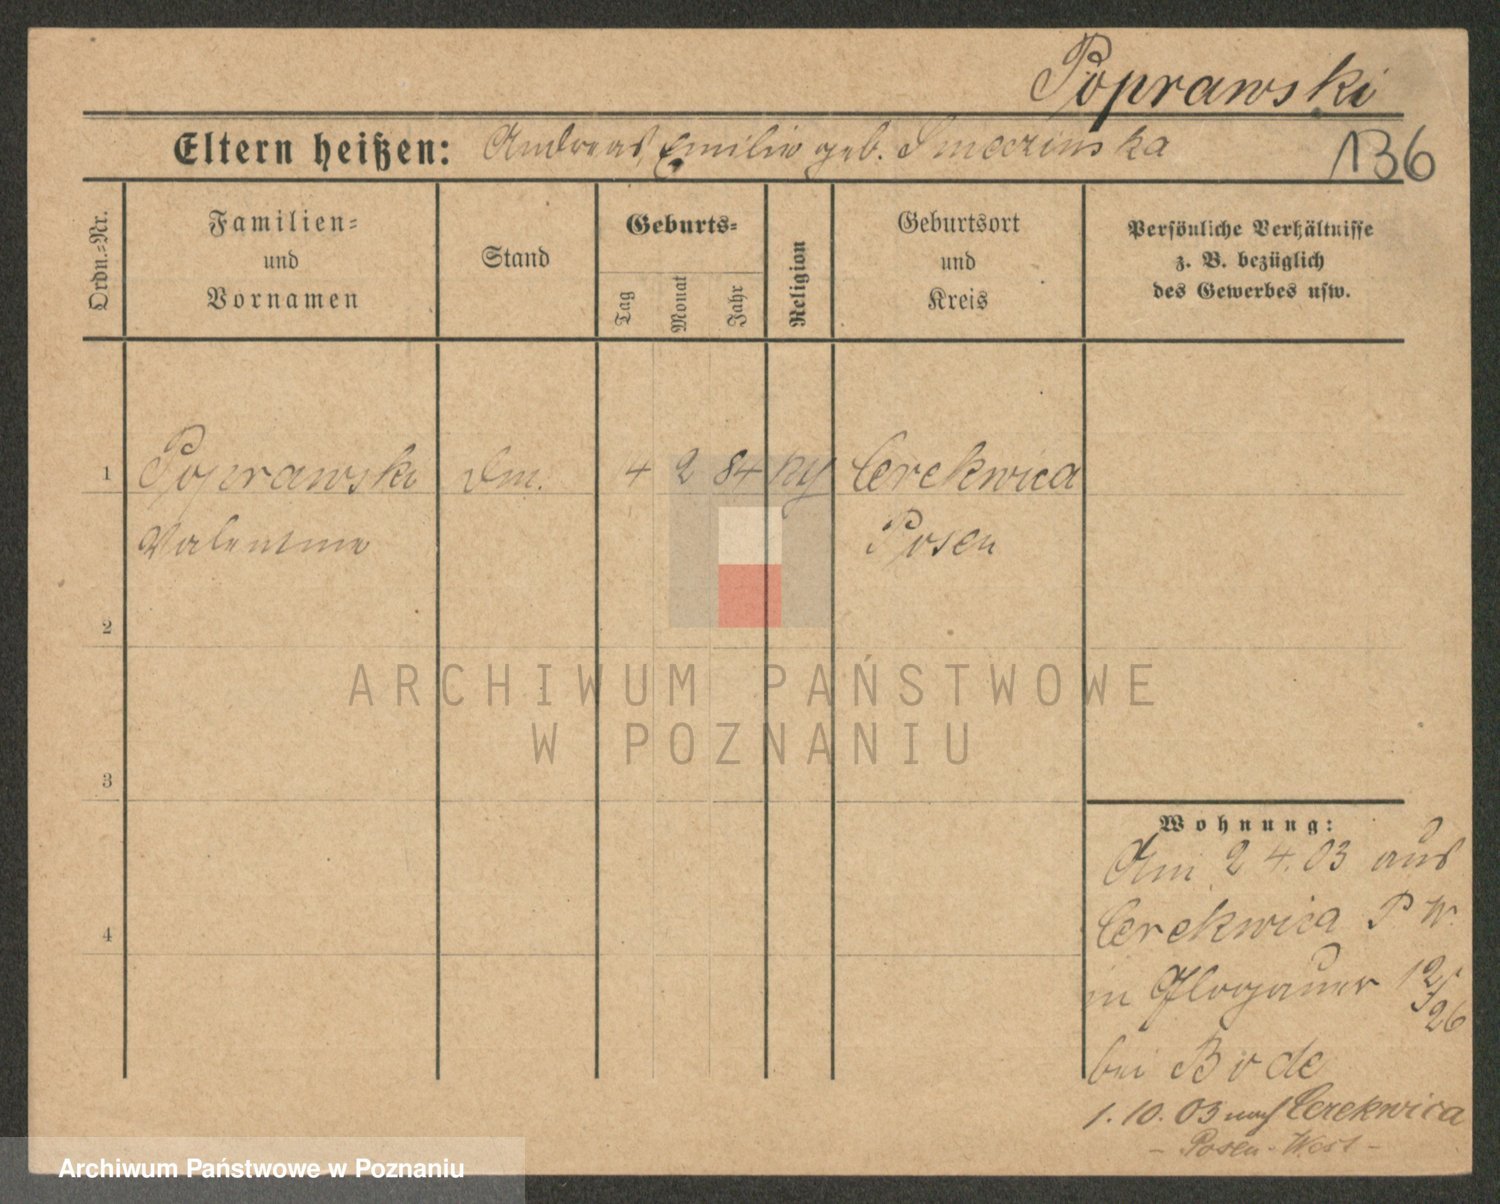 Poprawski
Eltern heißen: Andreas, Emilie geb. Smeczinska
136
Ordn.-Nr.
Familien-
und
Vornamen
Stand
Geburts-
Tag
Monat
Jahr
Religion
Geburtsort
und
Kreis
Persönliche Verhältnisse
z. B. bezüglich
des Gewerbes usw.
1 Poprawski 4 2 84 Cerekwica
Valentine Posen
2
3
4
ARCHIWUM PAŃSTWOWE
W POZNANIU
Wohnung:
Am 2 4. 03 aus
Cerekwica P W.
in Glogauer 125/26
bei Bode
1. 10. 03 nach Cerekwica
- Posen-West -
Archiwum Państwowe w Poznaniu